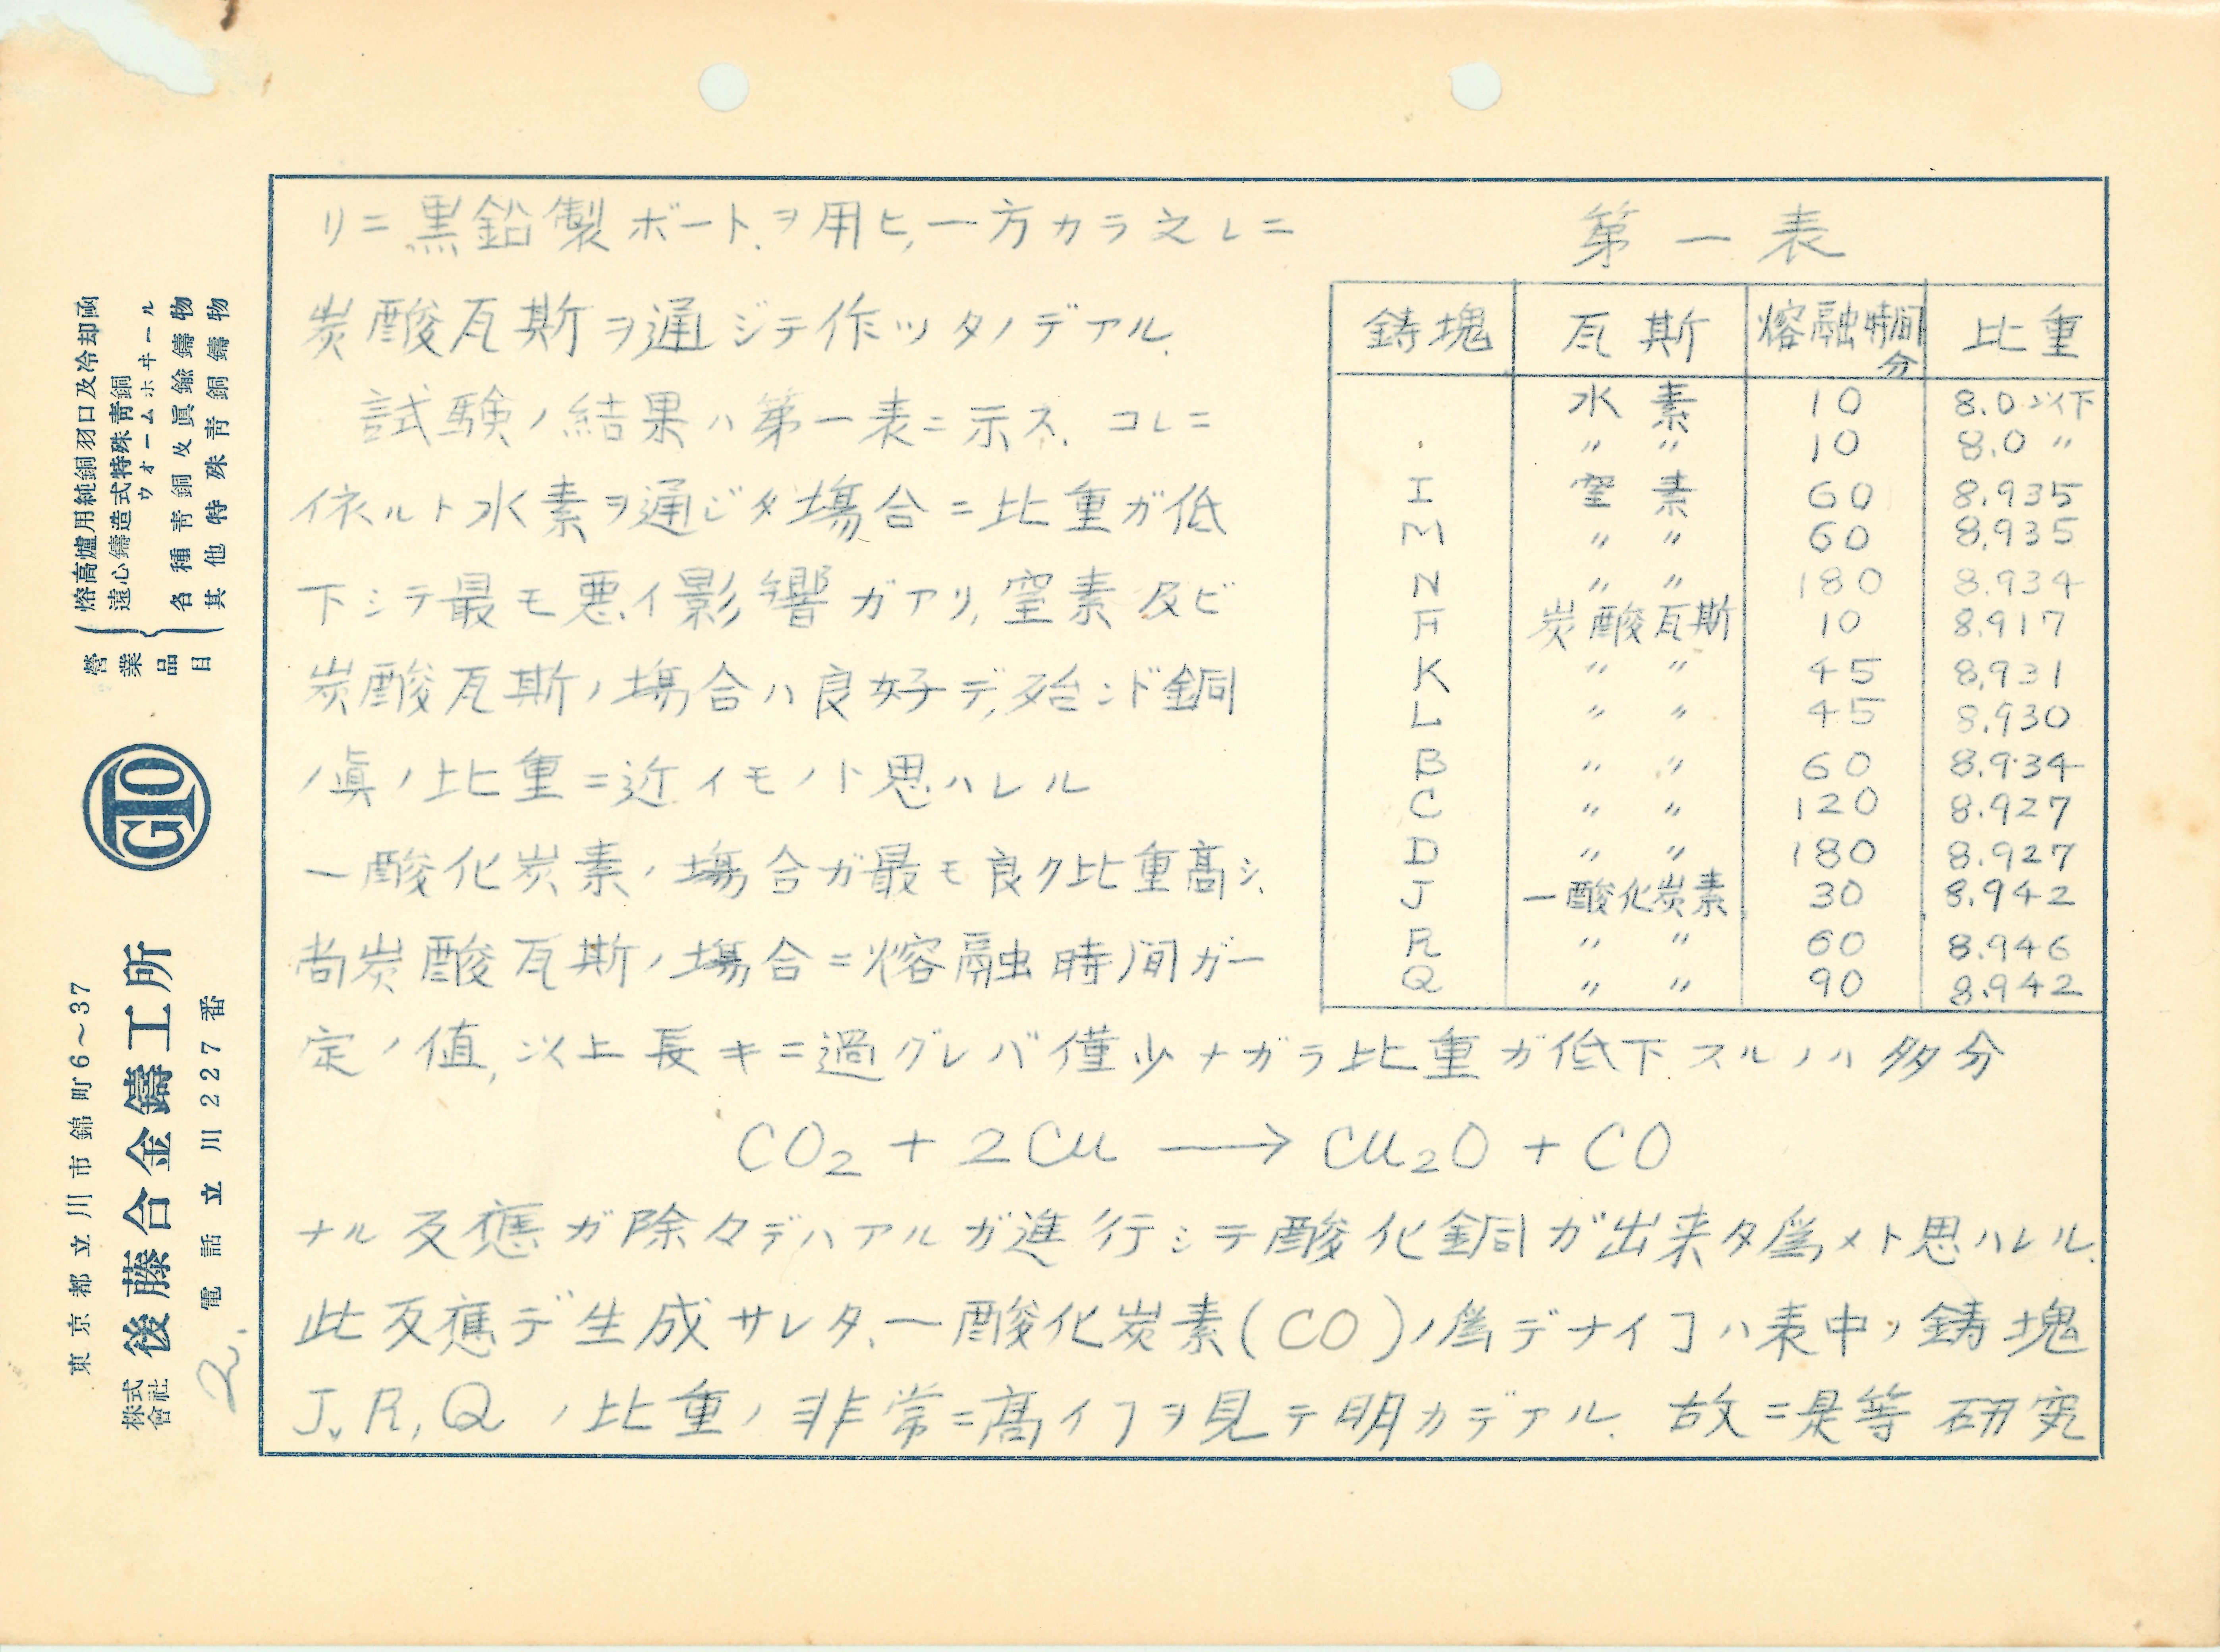 リニ黒鉛製ボートヲ用ヒ,一方カラ之レニ
炭酸瓦斯ヲ通ジテ作ッタノデアル.
試験ノ結果ハ第一表ニ示ス. コレニ
依ルト水素ヲ通ジタ場合ニ比重ガ低
下シテ最モ悪イ影響ガアリ,窒素及ビ
炭酸瓦斯ノ場合ハ良好デ,殆ンド銅
ノ眞ノ比重ニ近イモノト思ハレル
一酸化炭素ノ場合ガ最モ良ク比重高シ.
尚炭酸瓦斯ノ場合ニ熔融時間ガ一
定ノ値,以上長キニ過グレバ僅少ナガラ比重ガ低下スルノハ多分
CO₂ + 2Cu ⟶ Cu₂O + CO
ナル反應ガ除々デハアルガ進行シテ酸化銅ガ出来タ爲メト思ハレル.
此反應デ生成サレタ一酸化炭素(CO)ノ爲デナイヿハ表中ノ鋳塊
J,R,Qノ比重ノ非常ニ高イヿヲ見テ明カデアル. 故ニ是等研究
第一表
鋳塊 瓦斯 熔融時間分 比重
水素 10 8.0以下
〃 〃 10 8.0 〃
I 窒素 60 8.935
M 〃 〃 60 8.935
N 〃 〃 180 8.934
H 炭酸瓦斯 10 8.917
K 〃 〃 45 8.931
L 〃 〃 45 8.930
B 〃 〃 60 8.934
C 〃 〃 120 8.927
D 〃 〃 180 8.927
J 一酸化炭素 30 8.942
R 〃 〃 60 8.946
Q 〃 〃 90 8.942
營業品目
熔高爐用純銅羽口及冷却函
遠心鑄造式特殊青銅
ウォームホヰール
各種青銅及眞鍮鑄物
其他特殊青銅鑄物
GTO
東京都立川市錦町6~37
株式會社 後藤合金鑄工所
電話立川227番
2.